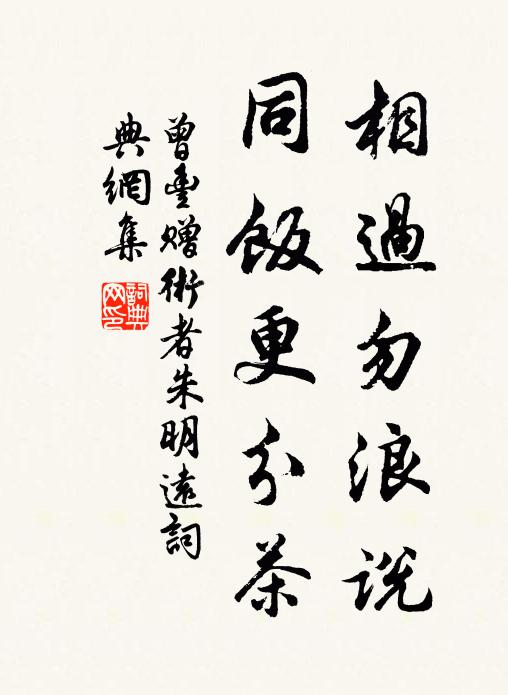 相過勿浪説
同飯更分茶
曾豐贈術者朱明遠詞
典網集
詞典网印